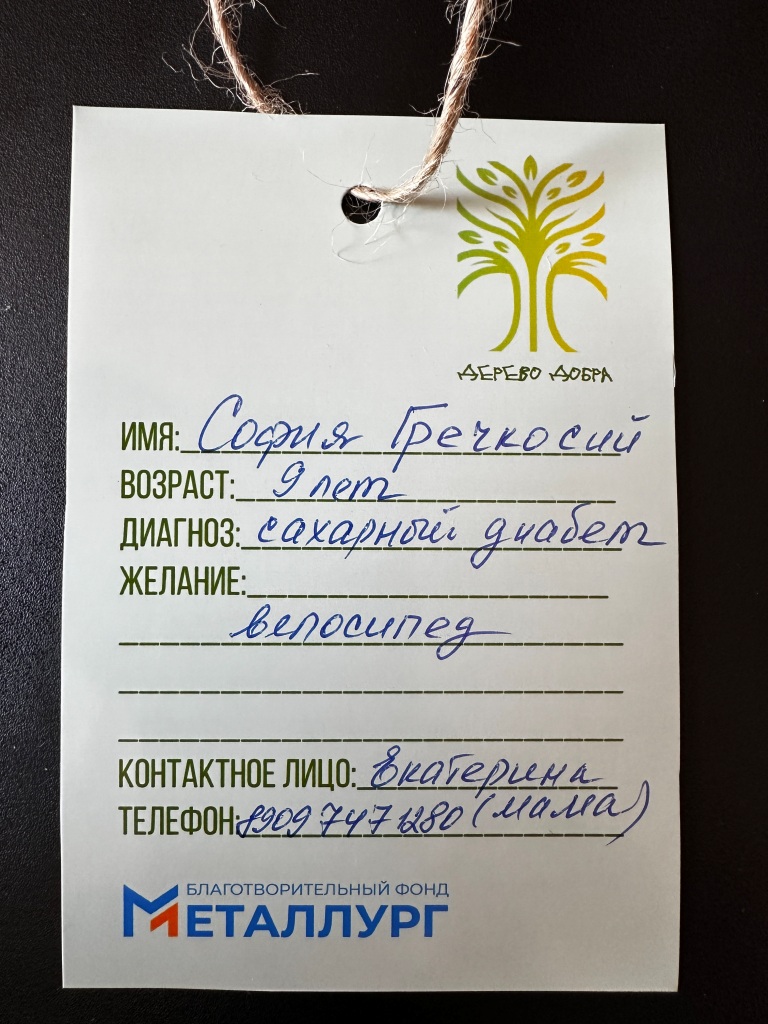 ДЕРЕВО ДОБРА
ИМЯ: София Гречкосий
ВОЗРАСТ: 9 лет
ДИАГНОЗ: сахарный диабет
ЖЕЛАНИЕ:
велосипед
КОНТАКТНОЕ ЛИЦО: Екатерина
ТЕЛЕФОН: 8909 747 1280 (мама)
БЛАГОТВОРИТЕЛЬНЫЙ ФОНД
МЕТАЛЛУРГ